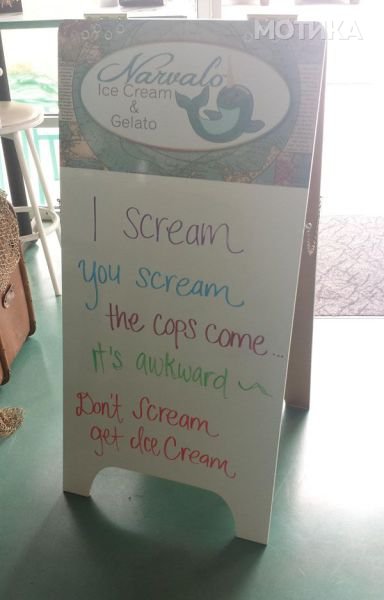 МОТИКА
Narvalo
Ice Cream
&
Gelato
I scream
you scream
the cops come...
it's awkward ~
Don't Scream
get Ice Cream